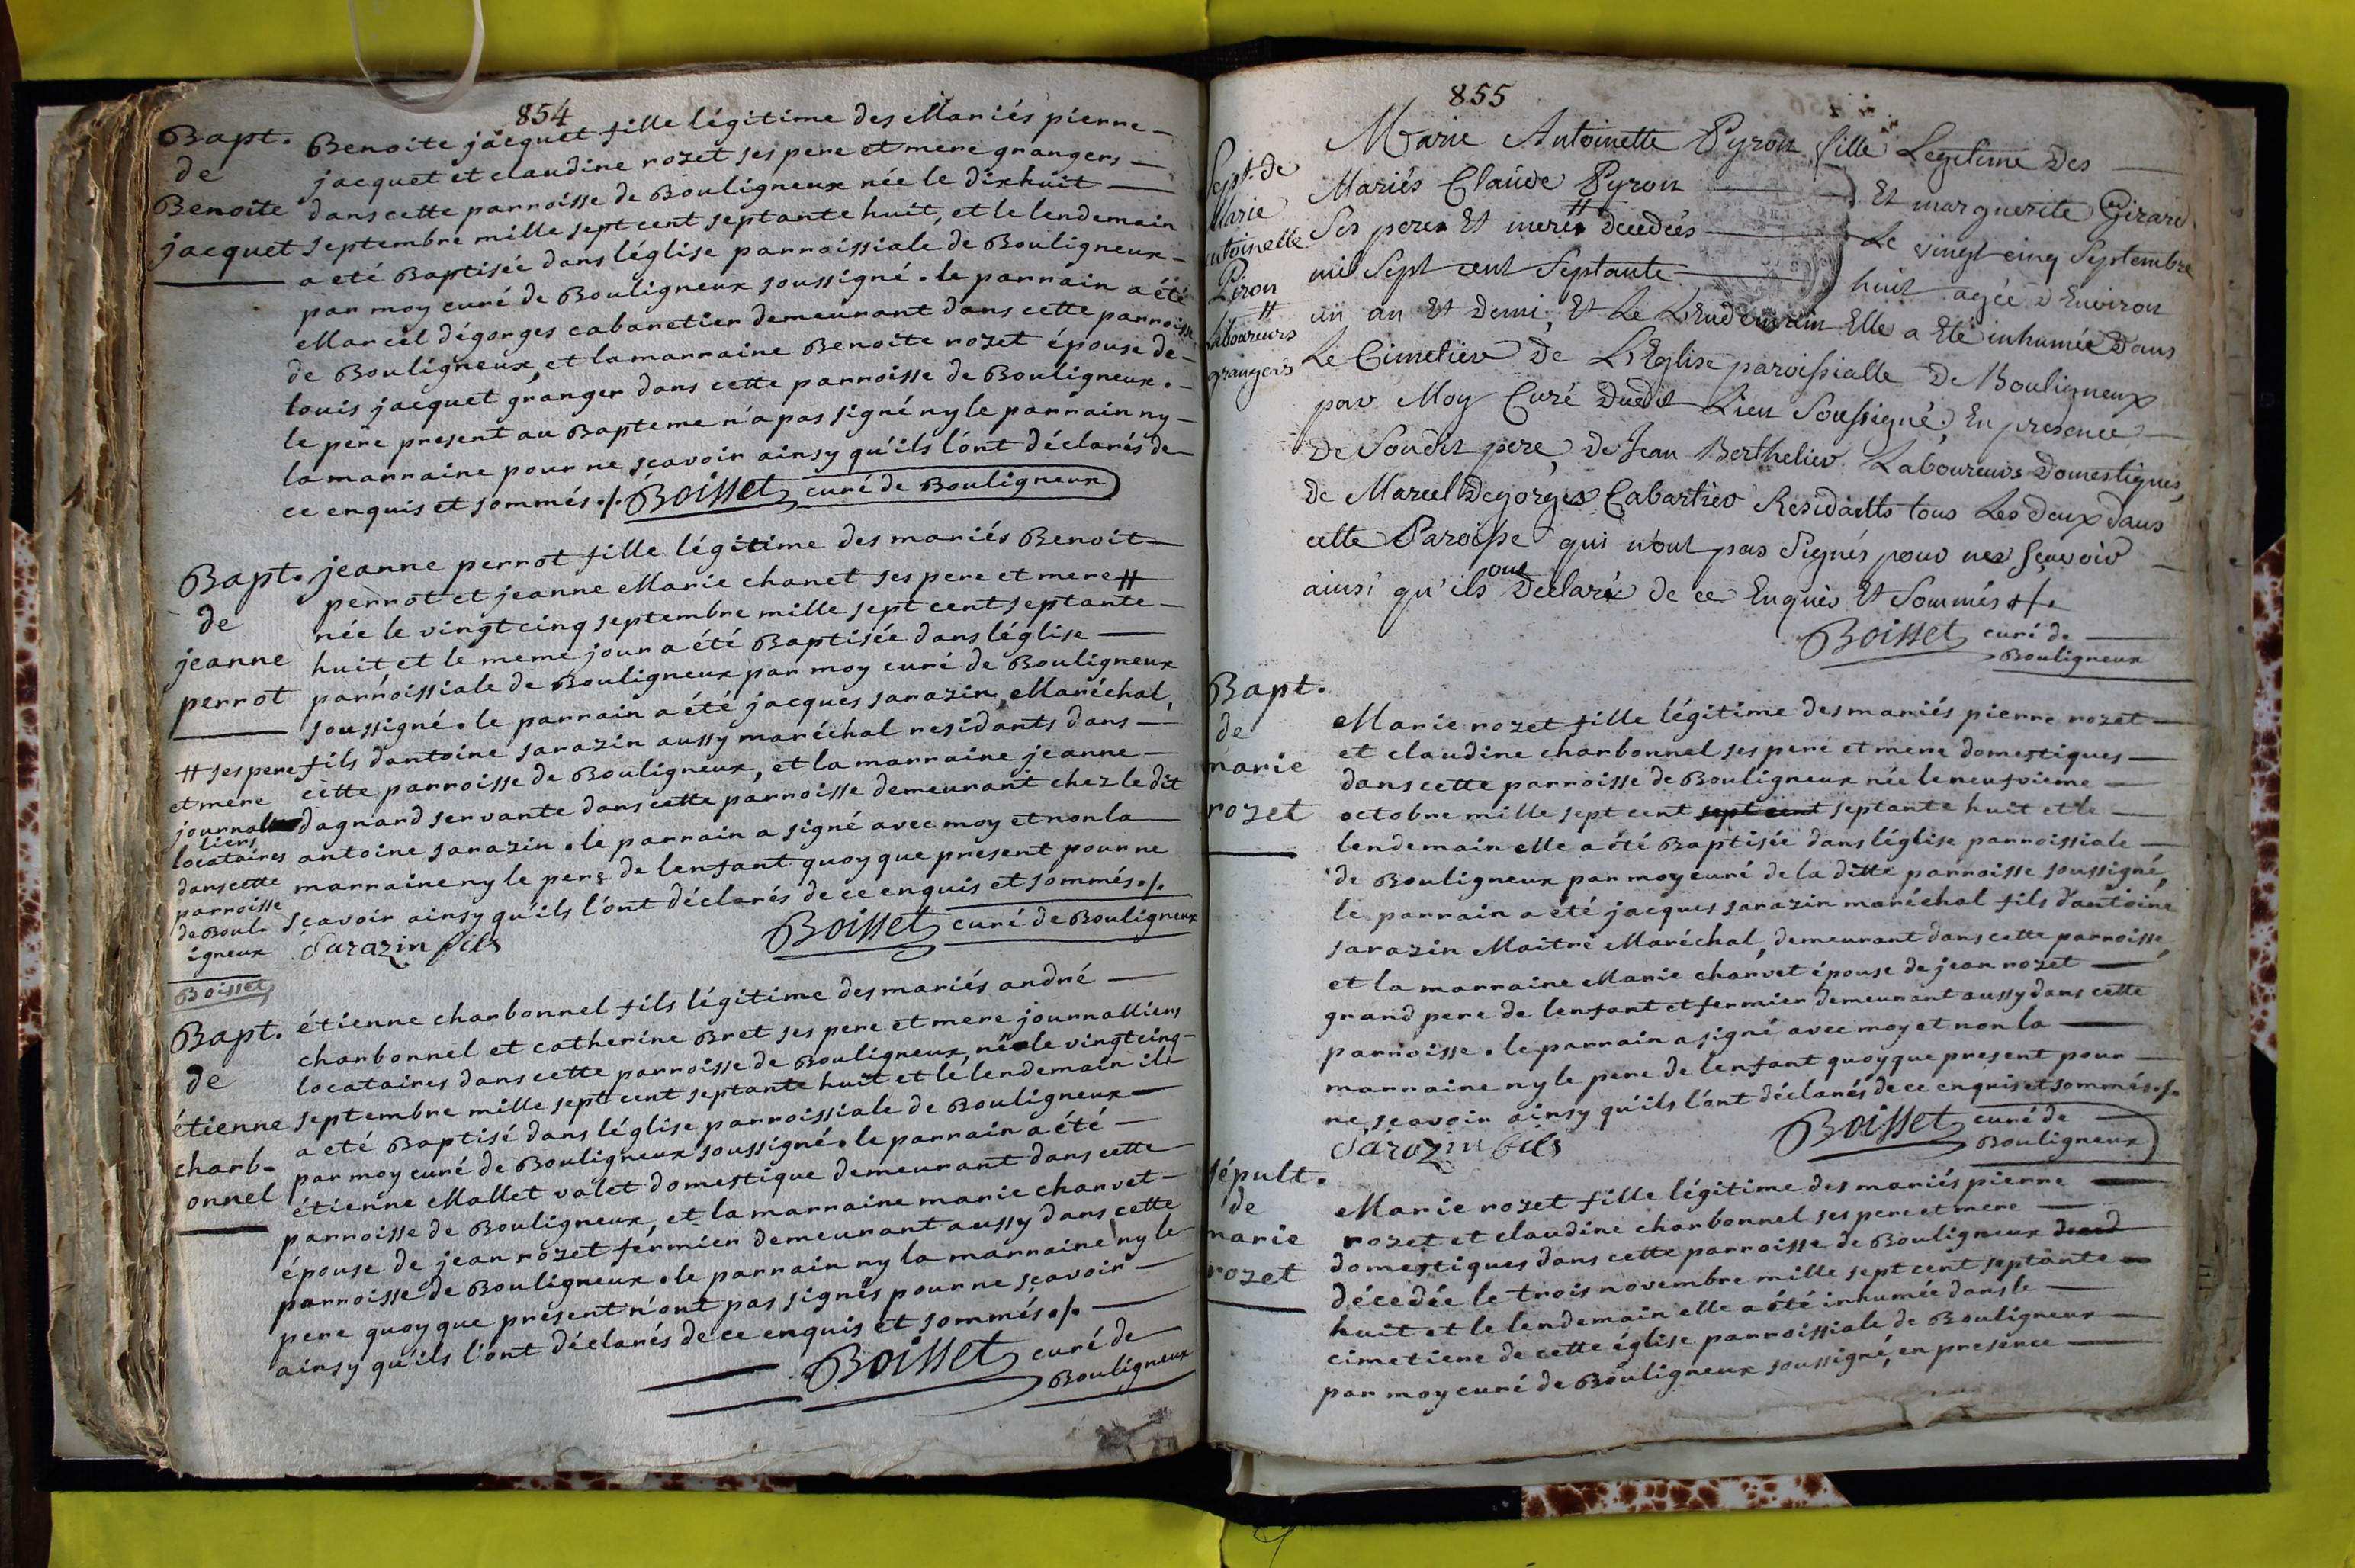 854
Bapt.
de
Benoite
jacquet
Benoite jacquet fille légitime des Mariés pierre
jacquet et claudine rozet ses pere et mere grangers
dans cette parroisse de Bouligneux née le dixhuit
septembre mille sept cent septante huit, et le lendemain
a eté Baptisée dans léglise parroissiale de Bouligneux
par moy curé de Bouligneux soussigné. le parrain a été
Marcel dégorges cabaretier demeurant dans cette parroisse
de Bouligneux, et la marraine Benoite rozet épouse de
louis jacquet granger dans cette parroisse de Bouligneux.
le pere present au Bapteme n'a pas signé ny le parrain ny
la marraine pour ne sçavoir ainsy qu'ils lónt déclarés de
ce enquis et sommés ./. Boisset curé de Bouligneux
Bapt.
de
jeanne
perrot
jeanne perrot fille légitime des mariés Benoit
perrot et jeanne Marie chanet ses pere et mere #
née le vingt cinq septembre mille sept cent septante
huit et le meme jour a été Baptisée dans léglise
parroissiale de Bouligneux par moy curé de Bouligneux
soussigné. le parrain a été jacques sarazin, Maréchal,
fils d'antoine sarazin aussy maréchal residants dans
cette parroisse de Bouligneux, et la marraine jeanne
dagnard servante dans cette parroisse demeurant chez le dit
antoine sarazin. le parrain a signé avec moy et non la
marraine ny le pere de lenfant quoy que present pour ne
sçavoir ainsy qu'ils l'ónt déclarés de ce enquis et sommés ./.
# ses pere
et mere
journal
liers
locataires
dans cette
parroisse
de Boul-
igneux
Boisset
Sarazin fils
Boisset curé de Bouligneux
Bapt.
de
étienne
charb-
onnel
étienne charbonnel fils légitime des mariés andré
charbonnel et catherine Bret ses pere et mere journalliers
locataires dans cette parroisse de Bouligneux, né le vingt cinq
septembre mille sept cent septante huit et lé lendemain il
a eté Baptisé dans léglise parroissiale de Bouligneux
par moy curé de Bouligneux soussigné. le parrain a été
étienne Mallet valet domestique demeurant dans cette
parroisse de Bouligneux, et la marraine marie charvet
épouse de jean rozet fermier demeurant aussy dans cette
parroisse de Bouligneux. le parrain ny la marraine ny le
pere quoy que présent n'ont pas signés pour ne sçavoir
ainsy qu'ils l'ónt déclarés de ce enquis et sommés ./.
Boisset curé de
Bouligneux
855
Sept. de
Marie
Antoinette
Piron
#
Laboureurs
grangers
Marie Antoinette Pyron fille Legitime Des
Mariés Claude Pyron Et marguerite Girard
Ses peres Et meres # decedées Le vingt cinq Septembre
mil Sept cent Septante huit agée d'Environ
un an Et Demi, Et Le Lendemain Elle a Eté inhumée Dans
Le Cimetier De L'Eglise paroissialle De Bouligneux
par Moy Curé Dudit Lieu Soussigné, En presence
De Soudit pere, De Jean Berthelier Laboureurs Domestiques,
De Marcel Degorges Cabartier Residants tous Les deux dans
cette Paroisse qui n'ont pas Signés pour nes sçavoir
ainsi qu'ils ont Declaré de ce Enquis Et Sommés ./.
Boisset curé de
Bouligneux
Bapt.
de
marie
rozet
Marie rozet fille légitime des mariés pierre rozet
et claudine charbonnel ses peré et mere domestiques
dans cette parroisse de Bouligneux née le neufvieme
octobre mille sept cent sept cent septante huit et le
lendemain elle a été Baptisée dans léglise parroissiale
de Bouligneux par moy curé de la ditte parroisse soussigné,
le parrain a eté jacques sarazin maréchal fils d'antoine
sarazin Maitre Maréchal, demeurant dans cette parroisse,
et la marraine Marie charvet épouse de jean rozet
grand pere de lenfant et fermier demeurant aussy dans cette
parroisse. le parrain a signé avec moy et non la
marraine ny le pere de lenfant quoy que present pour
ne sçavoir ainsy qu'ils l'ónt déclarés de ce enquis et sommés ./.
Sarazin fils
Boisset curé de
Bouligneux
sépult.
de
marie
rozet
Marie rozet fille légitime des mariés pierre
rozet et claudine charbonnel ses pere et mere
domestiques dans cette parroisse de Bouligneux deced
décedée le trois novembre mille sept cent septante
huit et le lendemain elle a été inhumée dans le
cimetiere de cette église parroissiale de Bouligneux
par moy curé de Bouligneux soussigné, en presence